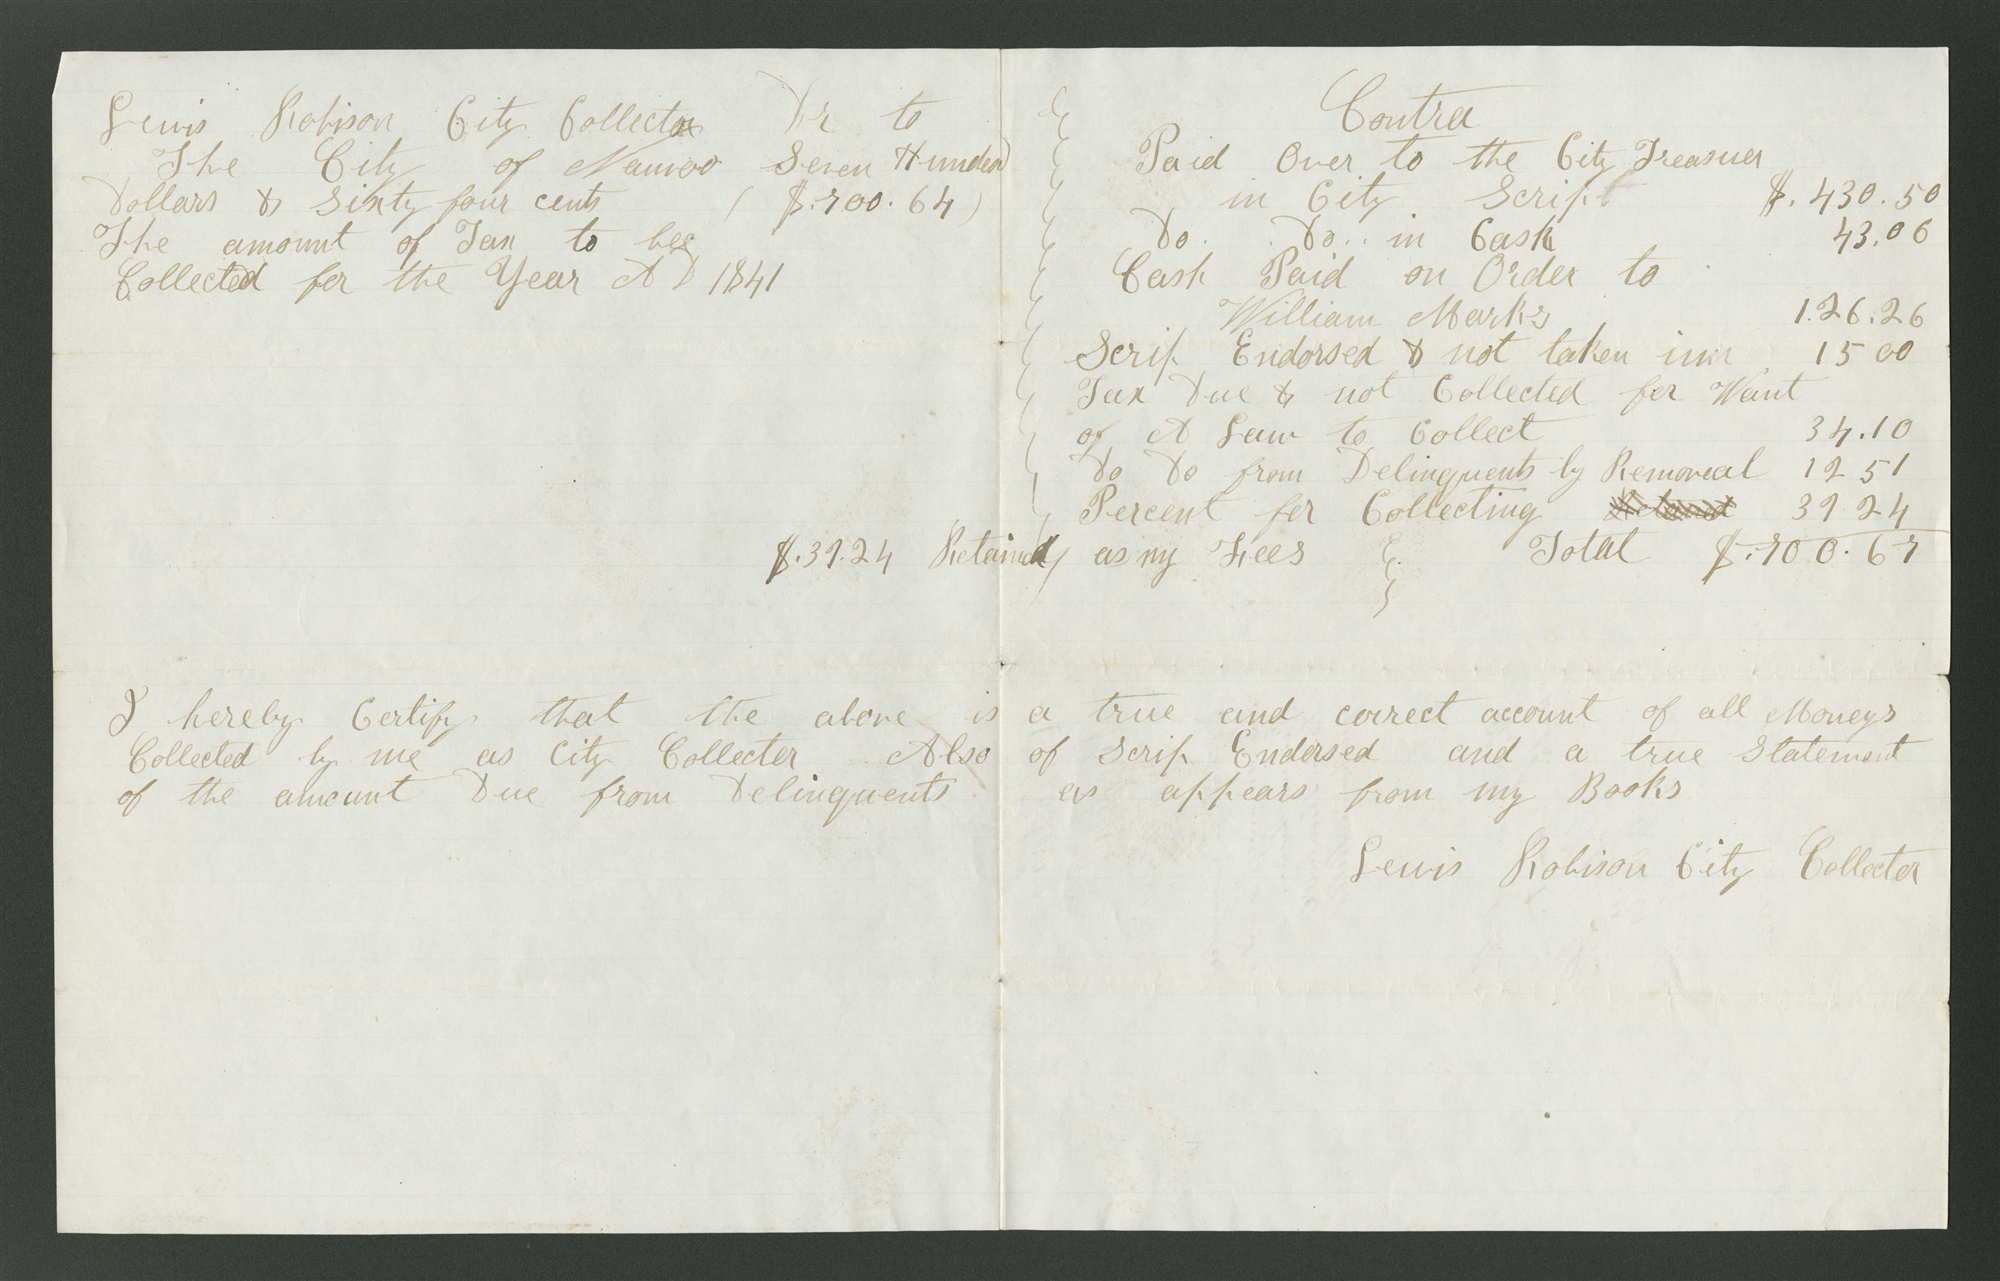 Lewis Robison City Collector Dr to
The City of Nauvoo Seven Hundred
Dollars & Sixty four cents ( $.700.64)
The amount of Tax to bee
Collected for the Year A D 1841
Contra
Paid Over to the City Treasurer
in City Scrip $.430.50
Do. Do.. in Cash 43.06
Cash Paid on Order to
William Marks 1.26.26
Scrip Endorsed & not taken inn 15 00
Tax Due & not Collected for Want
of A Law to Collect 34.10
Do Do from Delinquents by Removeal 12 51
Percent for Collecting Retained 39 24
$.39.24 Retained as my Fees Total $.700.67
I hereby Certify that the above is a true and correct account of all Moneys
Collected by me as City Collector Also of Scrip Endorsed and a true Statement
of the amount Due from Delinquents as appears from my Books
Lewis Robison City Collector